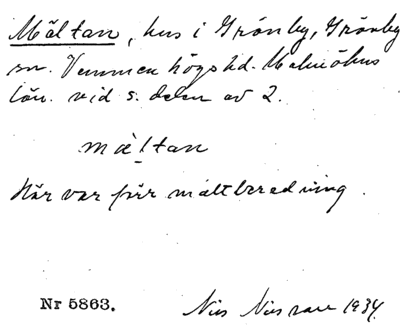 Mältan, hus i Grönby, Grönby
sn. Vemmenhögs hd. Malmöhus
län. vid s. delen av 2.
mȧltan
Här var förr maltberedning.
Nr 5863. Nils Nilsson 1934.